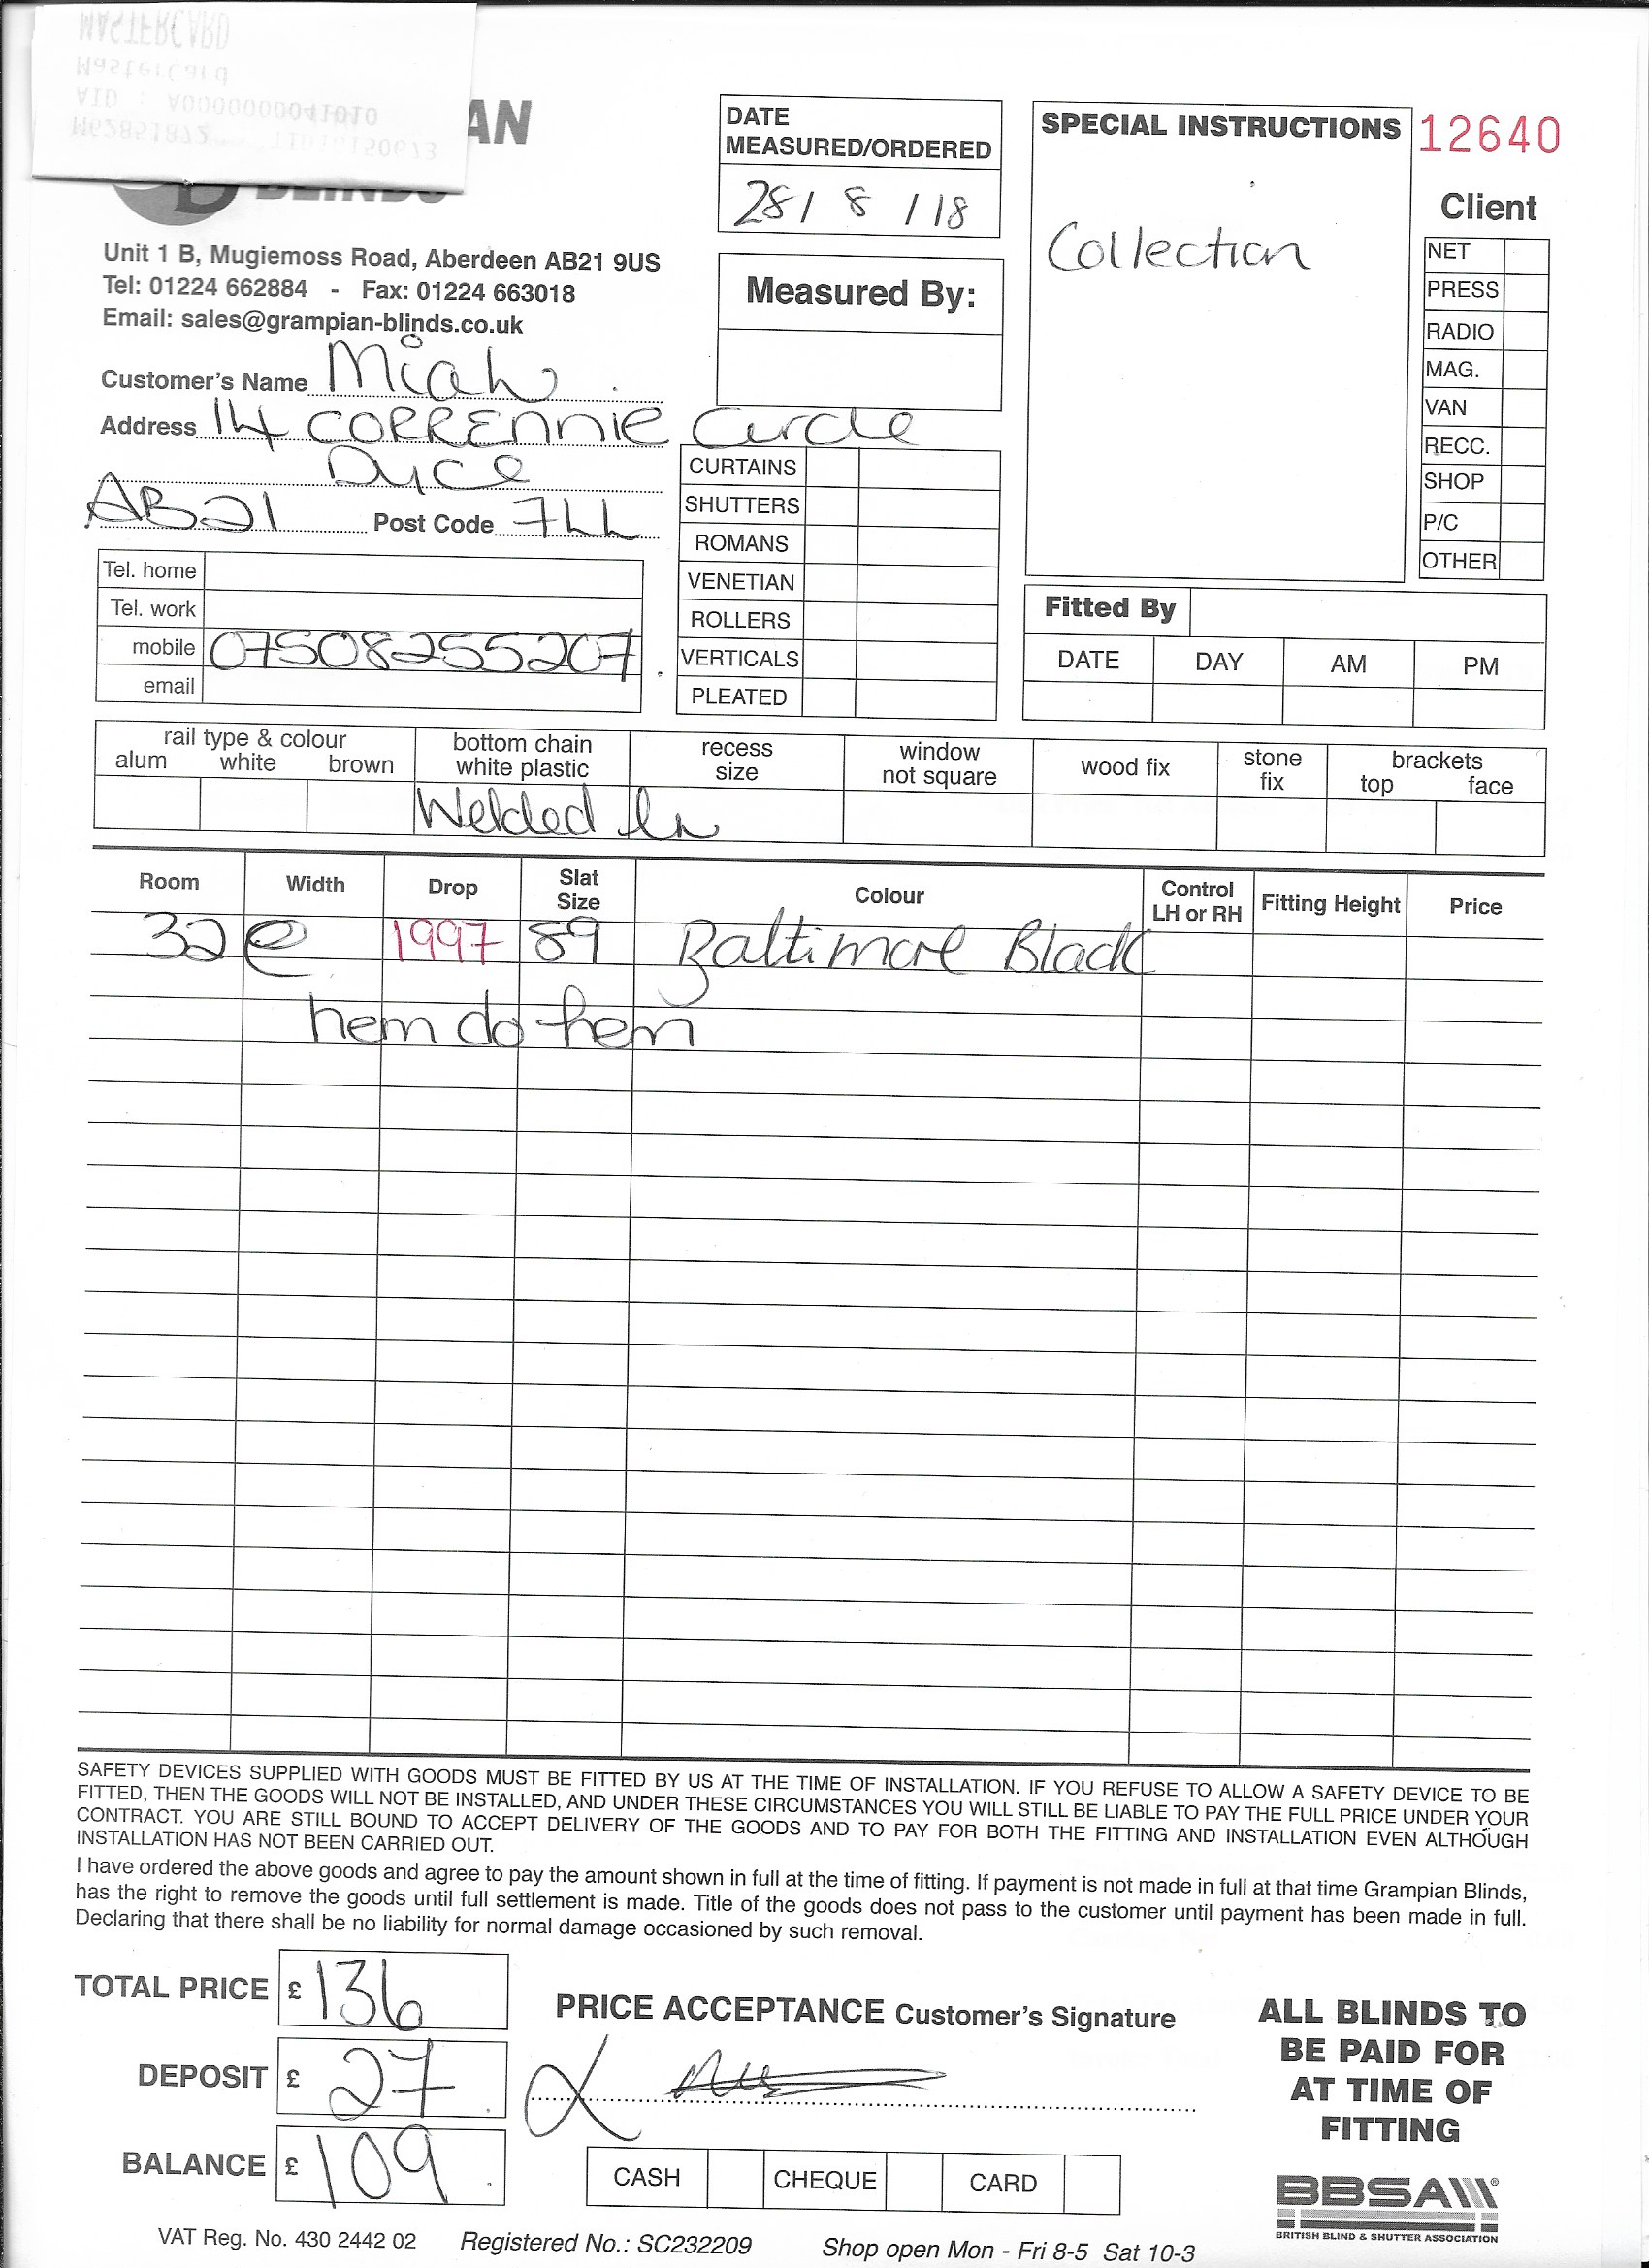 MASTERCARD
Mastercard
AID : A0000000041010
M62851872 TID
AN
BLINDS
Unit 1 B, Mugiemoss Road, Aberdeen AB21 9US
Tel: 01224 662884 - Fax: 01224 663018
Email: sales@grampian-blinds.co.uk
Customer's Name Miah
Address 14 CORRENNIE Circle
Dyce
AB21 Post Code 7LL
Tel. home
Tel. work
mobile 07508255207
email
DATE
MEASURED/ORDERED
28/ 8 /18
Measured By:
CURTAINS
SHUTTERS
ROMANS
VENETIAN
ROLLERS
VERTICALS
PLEATED
SPECIAL INSTRUCTIONS
Collection
12640
Client
NET
PRESS
RADIO
MAG.
VAN
RECC.
SHOP
P/C
OTHER
Fitted By
DATE DAY AM PM
rail type & colour
alum white brown
bottom chain
white plastic
recess
size
window
not square
wood fix
stone
fix
brackets
top face
Welded In
Room Width Drop Slat Size Colour Control LH or RH Fitting Height Price
32 @ 1997 89 Baltimore Black
hem do hem
SAFETY DEVICES SUPPLIED WITH GOODS MUST BE FITTED BY US AT THE TIME OF INSTALLATION. IF YOU REFUSE TO ALLOW A SAFETY DEVICE TO BE
FITTED, THEN THE GOODS WILL NOT BE INSTALLED, AND UNDER THESE CIRCUMSTANCES YOU WILL STILL BE LIABLE TO PAY THE FULL PRICE UNDER YOUR
CONTRACT. YOU ARE STILL BOUND TO ACCEPT DELIVERY OF THE GOODS AND TO PAY FOR BOTH THE FITTING AND INSTALLATION EVEN ALTHOUGH
INSTALLATION HAS NOT BEEN CARRIED OUT.
I have ordered the above goods and agree to pay the amount shown in full at the time of fitting. If payment is not made in full at that time Grampian Blinds,
has the right to remove the goods until full settlement is made. Title of the goods does not pass to the customer until payment has been made in full.
Declaring that there shall be no liability for normal damage occasioned by such removal.
TOTAL PRICE £ 136
DEPOSIT £ 27
BALANCE £ 109
PRICE ACCEPTANCE Customer's Signature
CASH CHEQUE CARD
ALL BLINDS TO
BE PAID FOR
AT TIME OF
FITTING
BBSA
BRITISH BLIND & SHUTTER ASSOCIATION
VAT Reg. No. 430 2442 02 Registered No.: SC232209 Shop open Mon - Fri 8-5 Sat 10-3